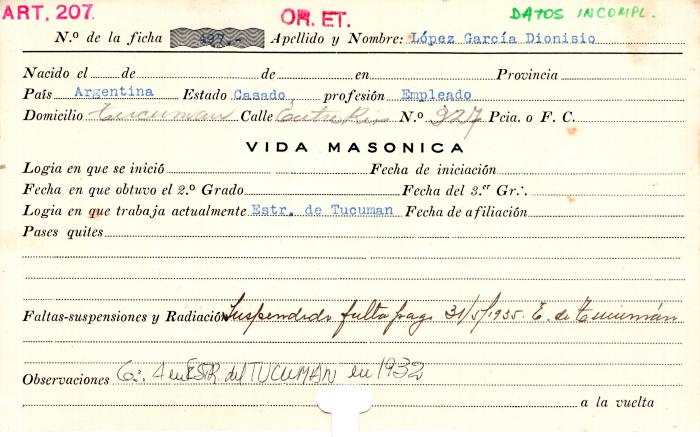 ART. 207. OR. ET. DATOS INCOMPL.
N.º de la ficha 497.- Apellido y Nombre: López García Dionisio
Nacido el de de en Provincia
País Argentina Estado Casado, profesión Empleado
Domicilio Tucuman Calle Entre Rios N.º 327 Pcia. o F. C.
VIDA MASONICA
Logia en que se inició Fecha de iniciación
Fecha en que obtuvo el 2.º Grado Fecha del 3.er Gr∴
Logia en que trabaja actualmente Estr. de Tucuman Fecha de afiliación
Pases quites
Faltas-suspensiones y Radiación Suspendido falta pago 31/5/1935. E. de Tucumán
Observaciones G∴ 4 en ESTR. del TUCUMAN en 1932
a la vuelta